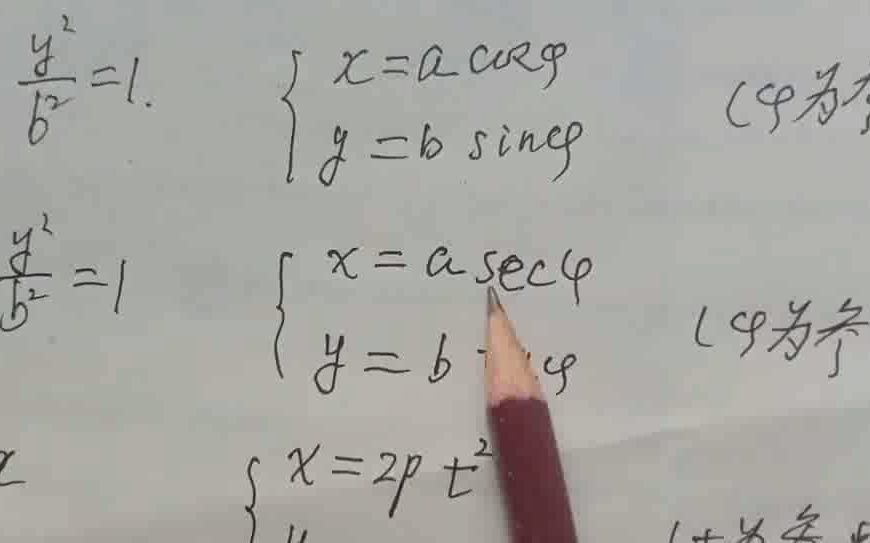 y²/b² = 1. { x = a cosφ
y = b sinφ (φ为
y²/b² = 1 { x = a secφ
y = b φ (φ为参
{ x = 2p t²